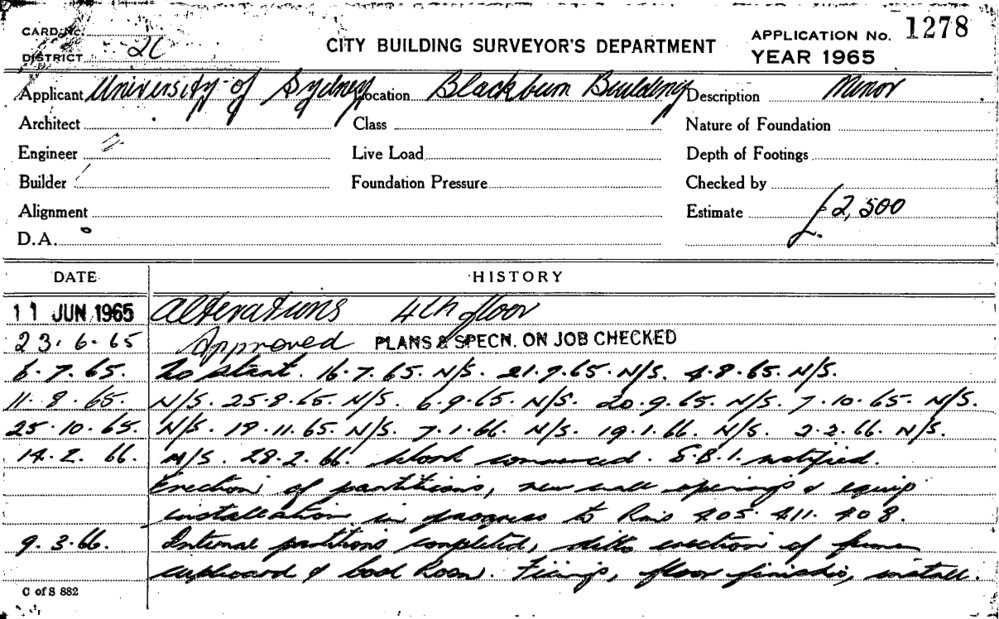 CARD No.
DISTRICT 2C
CITY BUILDING SURVEYOR'S DEPARTMENT
APPLICATION No. 1278
YEAR 1965
Applicant University of Sydney Location Blackburn Building Description Minor
Architect Class Nature of Foundation
Engineer Live Load Depth of Footings
Builder Foundation Pressure Checked by
Alignment Estimate £2,500
D.A.
DATE HISTORY
11 JUN 1965 Alterations 4th floor
23.6.65 Approved PLANS & SPECN. ON JOB CHECKED
6.7.65. To start. 16.7.65. N/S. 21.7.65. N/S. 4.8.65. N/S.
11.8.65. N/S. 25.8.65. N/S. 6.9.65. N/S. 20.9.65. N/S. 7.10.65. N/S.
25.10.65. N/S. 19.11.65. N/S. 7.1.66. N/S. 19.1.66. N/S. 2.2.66. N/S.
14.2.66. N/S. 28.2.66. Work commenced. S.B.I. notified.
Erection of partitions, new wall openings & equip
installation in progress to Rms 405. 411. 408.
9.3.66. Internal partitions completed, ditto erection of fume
cupboard & cool Room. Fixings, floor finishes, install.
C of S 882